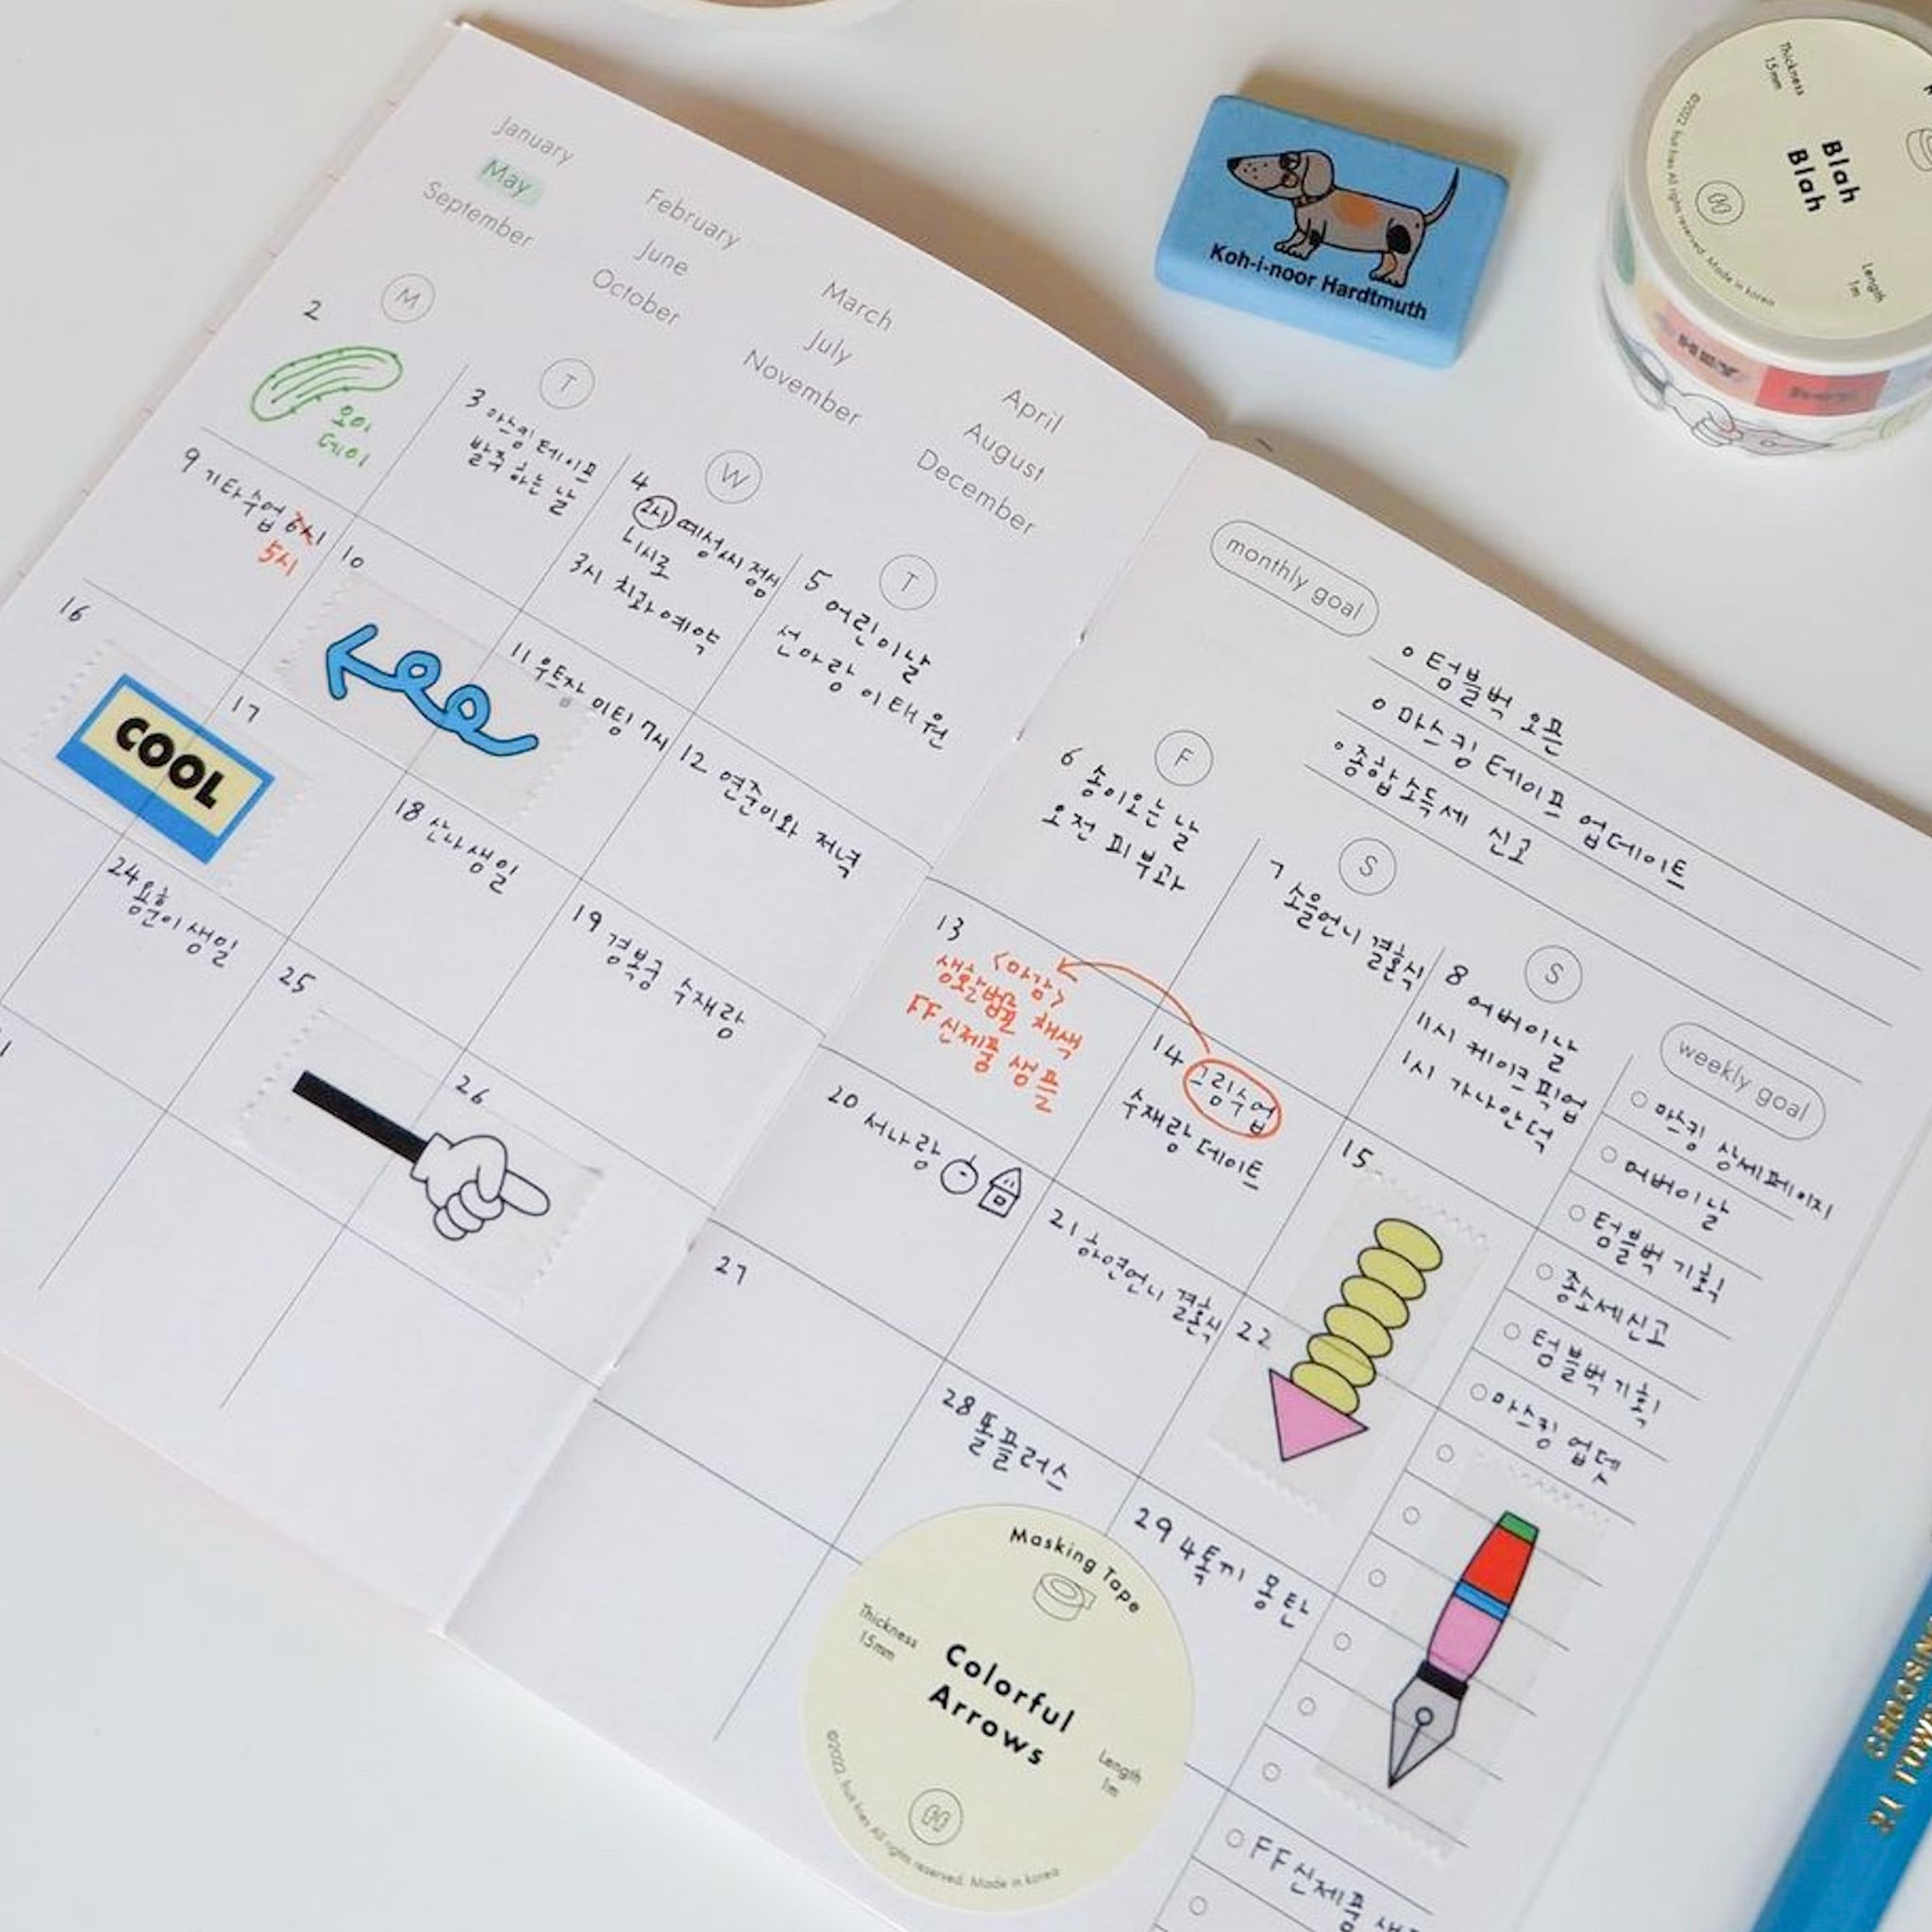 January
February
March
April
May
June
July
August
September
October
November
December
M
T
W
T
2
오이
데이
3 마스킹 테이프
발주 하는 날
4
2시 예성씨 점심
1시로
3시 치과예약
5 어린이날
선아랑 이태원
9 기타수업 6시
5시
10
11 우트자 미팅 7시
12 연준이와 저녁
16
COOL
17
18 산나생일
19 경복궁 수재랑
24 용훈이 생일
25
26
monthly goal
텀블벅 오픈
마스킹 테이프 업데이트
종합소득세 신고
F
S
S
6 송이오는 날
오전 피부과
7 소을언니 결혼식
8 어버이날
11시 케이크 픽업
1시 가나안덕
13
<마감>
생활법률 채색
FF 신제품 샘플
14 그림수업
수재랑 데이트
15
20 서나랑
21 하연언니 결혼식
22
27
28 똘플러스
29 4톡끼 몽탄
weekly goal
마스킹 상세페이지
어버이날
텀블벅 기획
종소세신고
텀블벅 기획
마스킹 업뎃
FF신제품
Masking Tape
Thickness
15mm
Colorful
Arrows
Length
1m
©2022. fruit fries All rights reserved. Made in korea
Koh-i-noor Hardtmuth
Thickness
15mm
Blah
Blah
Length
1m
©2022. fruit fries All rights reserved. Made in korea
HEY